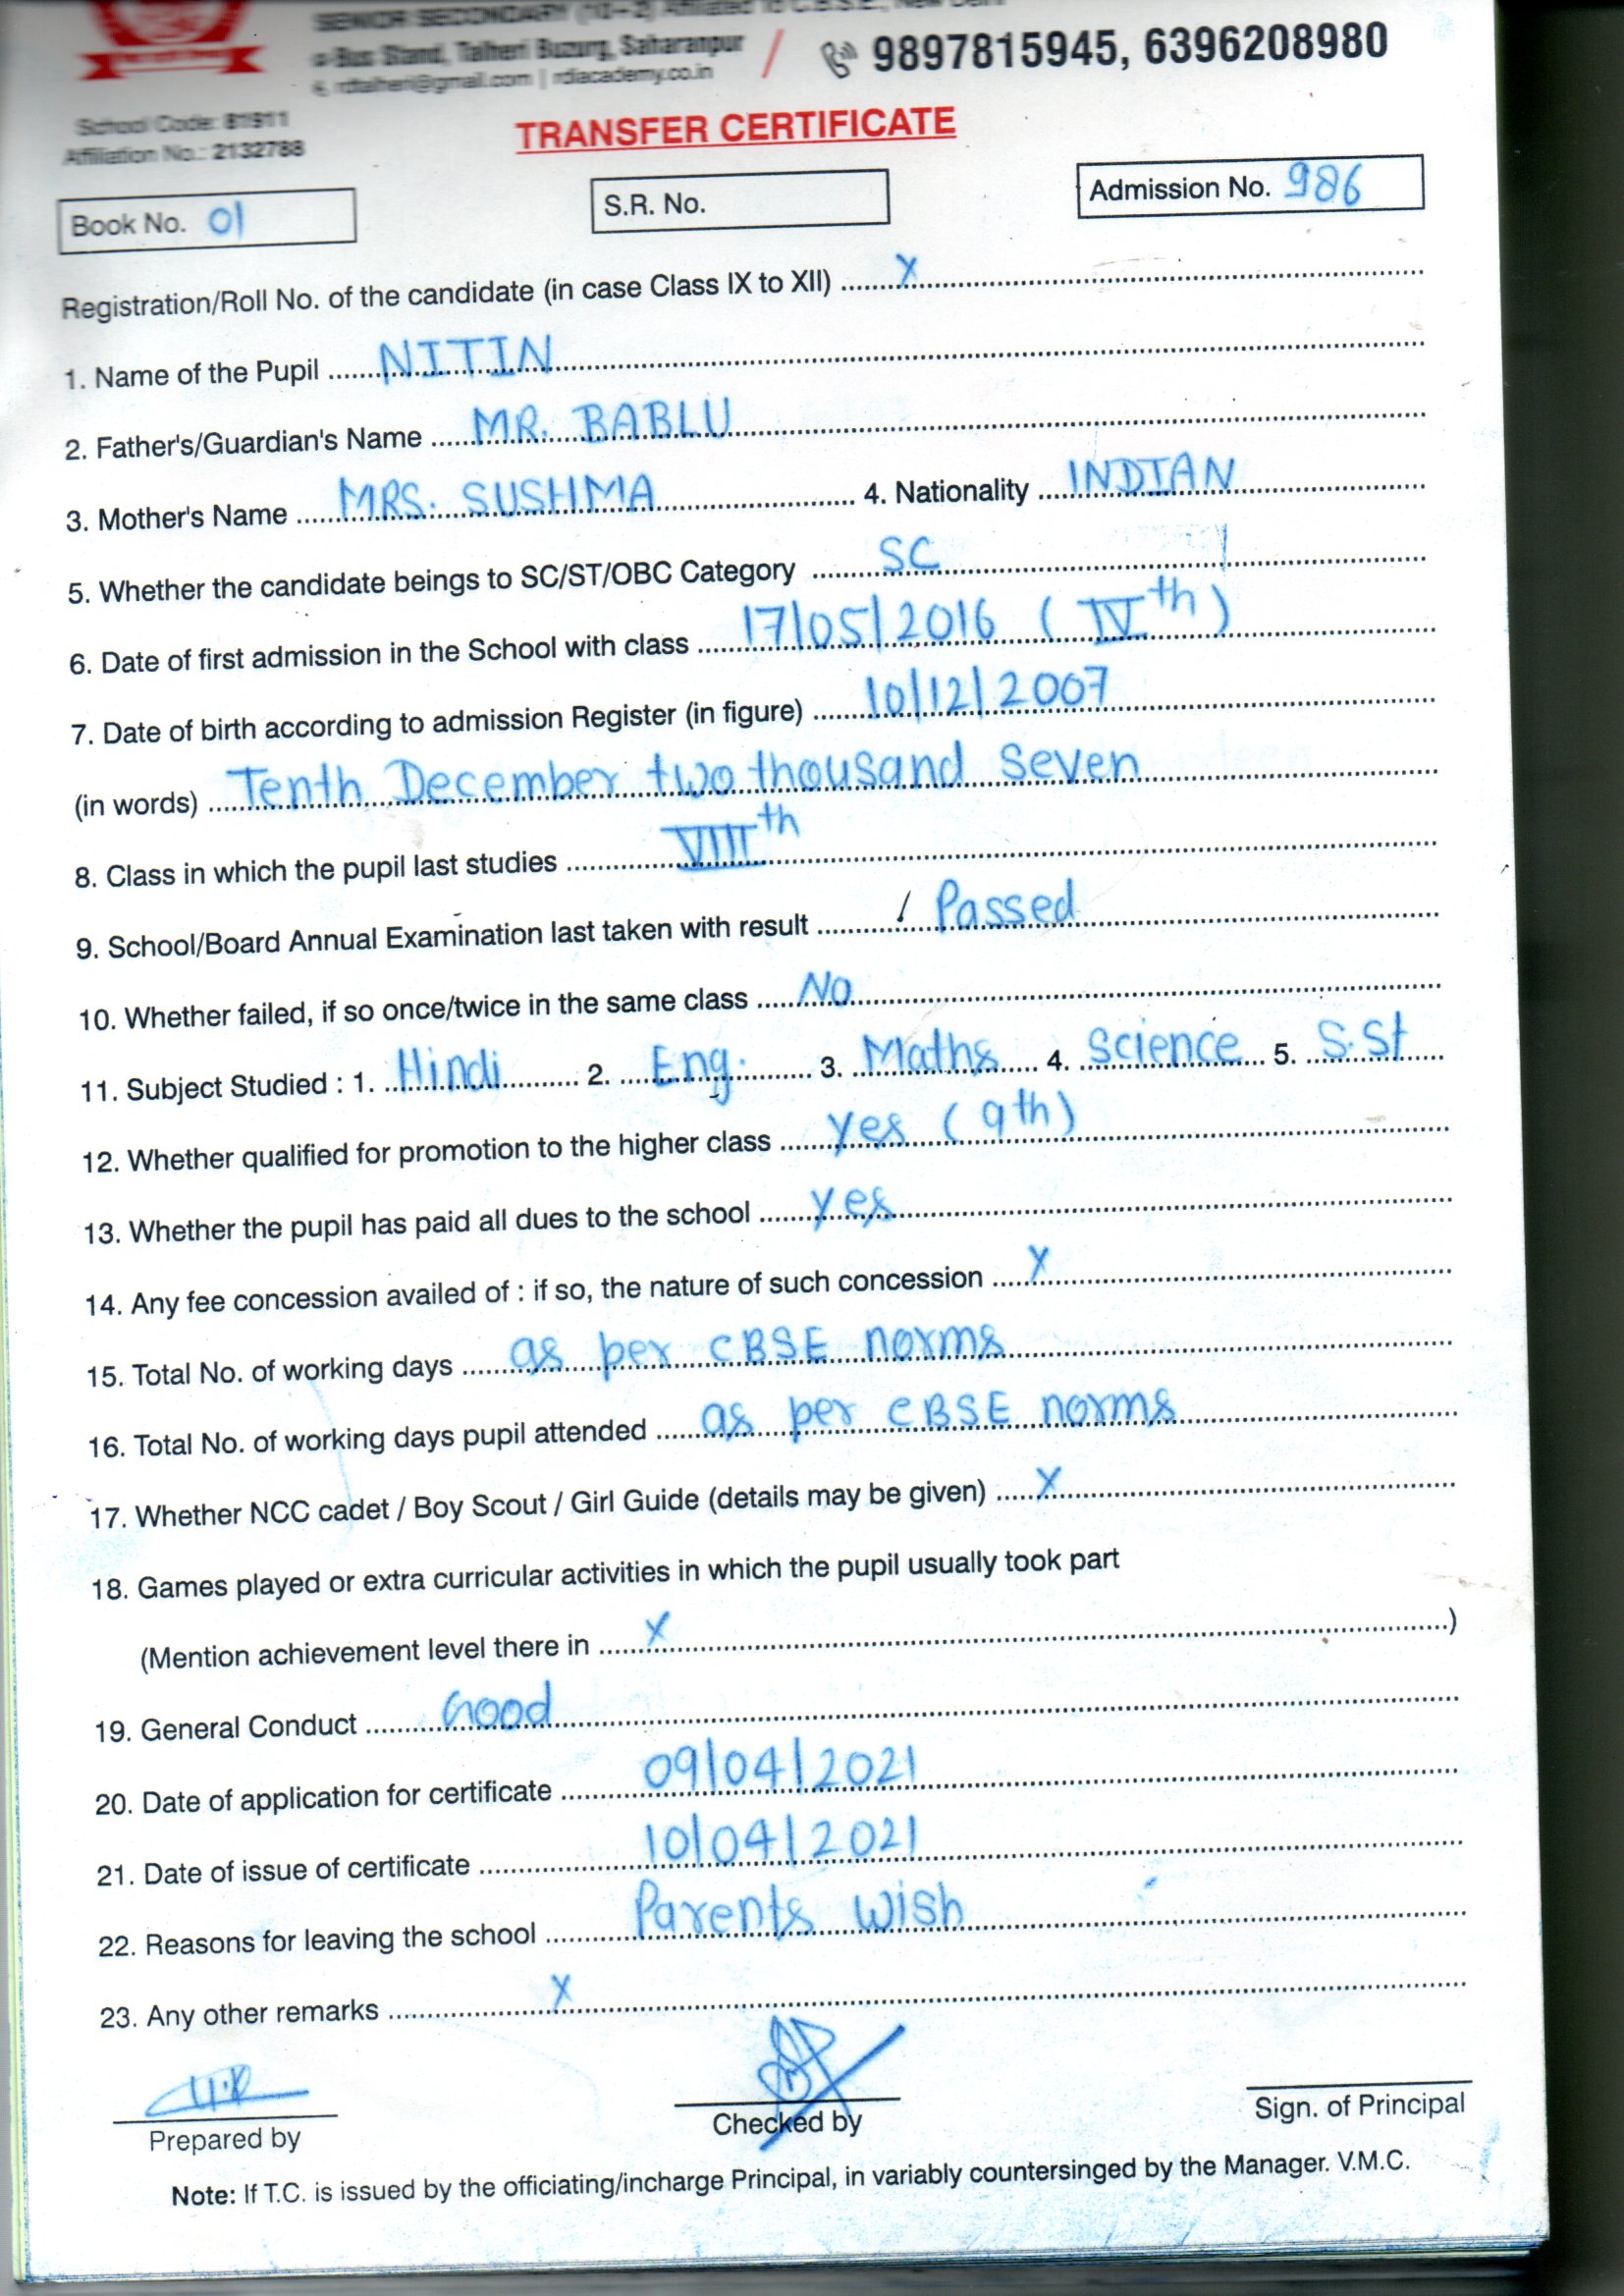 SENIOR SECONDARY (10+2) Affiliated to C.B.S.E., New Delhi
Bus Stand, Talheri Buzurg, Saharanpur
rdtalheri@gmail.com | rdiacademy.co.in
9897815945, 6396208980
School Code: 81911
Affiliation No.: 2132788
TRANSFER CERTIFICATE
Book No. 01
S.R. No.
Admission No. 986
Registration/Roll No. of the candidate (in case Class IX to XII) X
1. Name of the Pupil NITIN
2. Father's/Guardian's Name MR. BABLU
3. Mother's Name MRS. SUSHMA 4. Nationality INDIAN
5. Whether the candidate beings to SC/ST/OBC Category SC
6. Date of first admission in the School with class 17/05/2016 (IVth)
7. Date of birth according to admission Register (in figure) 10/12/2007
(in words) Tenth December two thousand seven
8. Class in which the pupil last studies VIIIth
9. School/Board Annual Examination last taken with result Passed
10. Whether failed, if so once/twice in the same class No
11. Subject Studied : 1. Hindi 2. Eng. 3. Maths 4. Science 5. S.St
12. Whether qualified for promotion to the higher class yes (9th)
13. Whether the pupil has paid all dues to the school yes
14. Any fee concession availed of : if so, the nature of such concession X
15. Total No. of working days as per CBSE norms
16. Total No. of working days pupil attended as per CBSE norms
17. Whether NCC cadet / Boy Scout / Girl Guide (details may be given) X
18. Games played or extra curricular activities in which the pupil usually took part
(Mention achievement level there in X )
19. General Conduct Good
20. Date of application for certificate 09/04/2021
21. Date of issue of certificate 10/04/2021
22. Reasons for leaving the school Parents wish
23. Any other remarks X
Prepared by
Checked by
Sign. of Principal
Note: If T.C. is issued by the officiating/incharge Principal, in variably countersinged by the Manager. V.M.C.